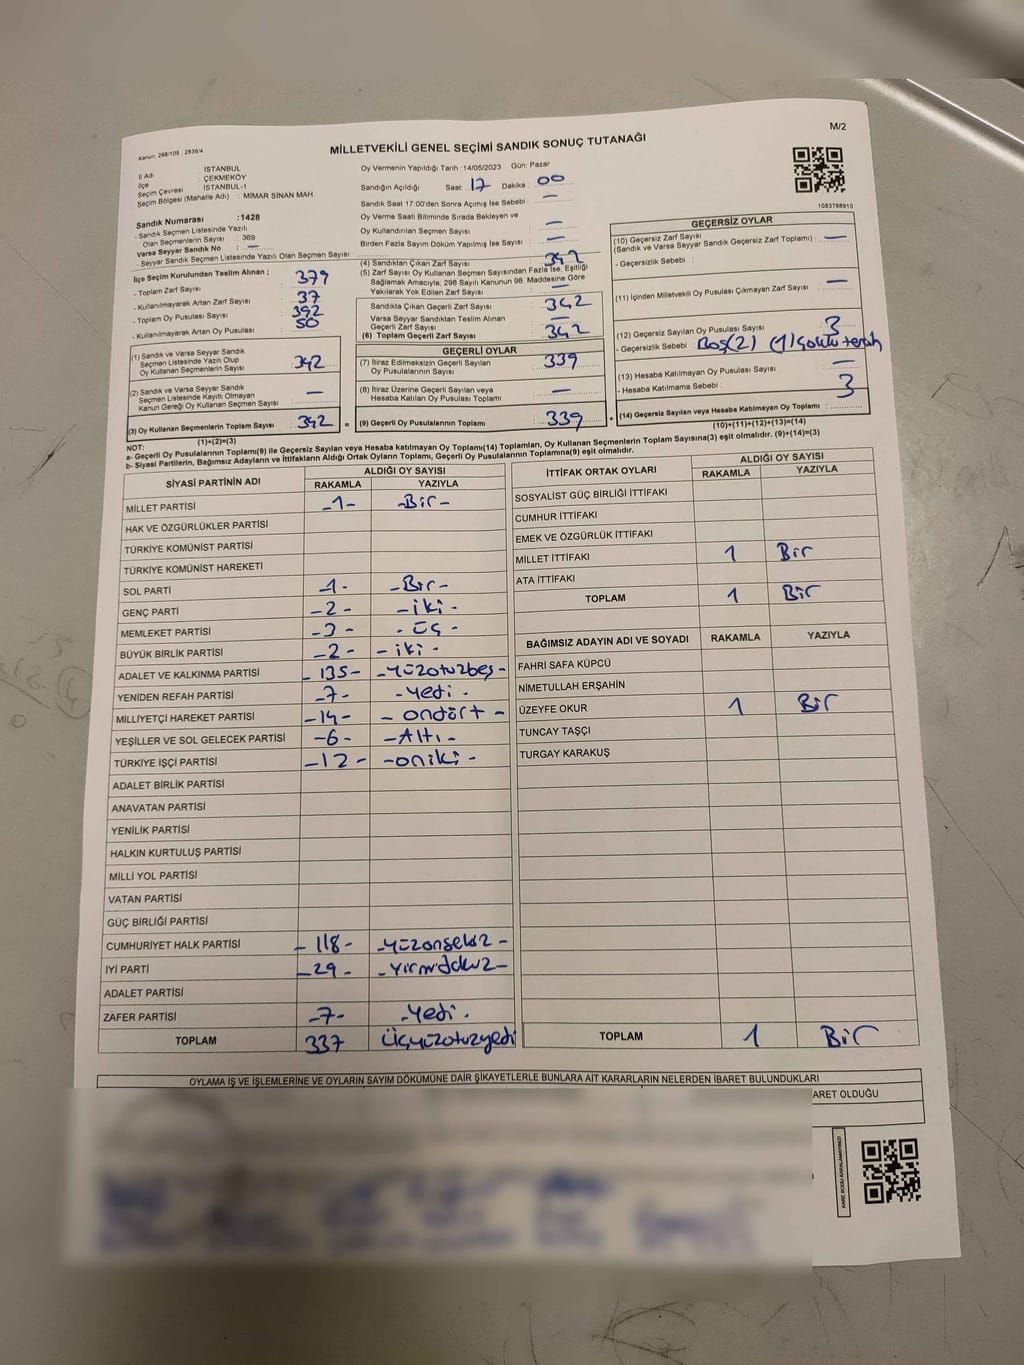 M/2
Kanun: 298/105 , 2839/4
MİLLETVEKİLİ GENEL SEÇİMİ SANDIK SONUÇ TUTANAĞI
İl Adı : İSTANBUL
İlçe : ÇEKMEKÖY
Seçim Çevresi : İSTANBUL-1
Seçim Bölgesi (Mahalle Adı) : MİMAR SİNAN MAH
Sandık Numarası :1428
- Sandık Seçmen Listesinde Yazılı
Olan Seçmenlerin Sayısı : 369
Varsa Seyyar Sandık No : —
- Seyyar Sandık Seçmen Listesinde Yazılı Olan Seçmen Sayısı
İlçe Seçim Kurulundan Teslim Alınan :
- Toplam Zarf Sayısı : 379
- Kullanılmayarak Artan Zarf Sayısı : 37
- Toplam Oy Pusulası Sayısı : 392
- Kullanılmayarak Artan Oy Pusulası : 50
(1) Sandık ve Varsa Seyyar Sandık
Seçmen Listesinde Yazılı Olup
Oy Kullanan Seçmenlerin Sayısı : 342
(2) Sandık ve Varsa Seyyar Sandık
Seçmen Listesinde Kayıtlı Olmayan
Kanun Gereği Oy Kullanan Seçmen Sayısı : —
(3) Oy Kullanan Seçmenlerin Toplam Sayısı : 342 =
(1)+(2)=(3)
Oy Vermenin Yapıldığı Tarih : 14/05/2023 Gün: Pazar
Sandığın Açıldığı Saat : 17 Dakika : 00
Sandık Saat 17:00'den Sonra Açılmış İse Sebebi : —
Oy Verme Saati Bitiminde Sırada Bekleyen ve
Oy Kullandırılan Seçmen Sayısı : —
Birden Fazla Sayım Döküm Yapılmış İse Sayısı : —
(4) Sandıktan Çıkan Zarf Sayısı : 342
(5) Zarf Sayısı Oy Kullanan Seçmen Sayısından Fazla İse, Eşitliği
Sağlamak Amacıyla; 298 Sayılı Kanunun 98. Maddesine Göre
Yakılarak Yok Edilen Zarf Sayısı : —
Sandıkta Çıkan Geçerli Zarf Sayısı : 342
Varsa Seyyar Sandıktan Teslim Alınan
Geçerli Zarf Sayısı : —
(6) Toplam Geçerli Zarf Sayısı : 342
GEÇERLİ OYLAR
(7) İtiraz Edilmeksizin Geçerli Sayılan
Oy Pusulası Sayısı : 339
(8) İtiraz Üzerine Geçerli Sayılan veya
Hesaba Katılan Oy Pusulası Toplamı : —
(9) Geçerli Oy Pusulalarının Toplamı : 339 +
1083786910
GEÇERSİZ OYLAR
(10) Geçersiz Zarf Sayısı
(Sandık ve Varsa Seyyar Sandık Geçersiz Zarf Toplamı) : —
- Geçersizlik Sebebi :
(11) İçinden Milletvekili Oy Pusulası Çıkmayan Zarf Sayısı : —
(12) Geçersiz Sayılan Oy Pusulası Sayısı : 3
- Geçersizlik Sebebi : Boş(2) (1) çoklu tercih
(13) Hesaba Katılmayan Oy Pusulası Sayısı : —
- Hesaba Katılmama Sebebi :
(14) Geçersiz Sayılan veya Hesaba Katılmayan Oy Toplamı : 3
(10)+(11)+(12)+(13)=(14)
NOT:
a- Geçerli Oy Pusulalarının Toplamı(9) ile Geçersiz Sayılan veya Hesaba katılmayan Oy Toplamı(14) Toplamları, Oy Kullanan Seçmenlerin Toplam Sayısına(3) eşit olmalıdır. (9)+(14)=(3)
b- Siyasi Partilerin, Bağımsız Adayların ve İttifakların Aldığı Ortak Oyların Toplamı, Geçerli Oy Pusulalarının Toplamına(9) eşit olmalıdır.
SİYASİ PARTİNİN ADI ALDIĞI OY SAYISI
RAKAMLA YAZIYLA
MİLLET PARTİSİ -1- -Bir-
HAK VE ÖZGÜRLÜKLER PARTİSİ
TÜRKİYE KOMÜNİST PARTİSİ
TÜRKİYE KOMÜNİST HAREKETİ
SOL PARTİ -1- -Bir-
GENÇ PARTİ -2- -iki-
MEMLEKET PARTİSİ -3- -Üç-
BÜYÜK BİRLİK PARTİSİ -2- -iki-
ADALET VE KALKINMA PARTİSİ -135- -Yüzotuzbeş-
YENİDEN REFAH PARTİSİ -7- -Yedi-
MİLLİYETÇİ HAREKET PARTİSİ -14- -ondört-
YEŞİLLER VE SOL GELECEK PARTİSİ -6- -Altı-
TÜRKİYE İŞÇİ PARTİSİ -12- -oniki-
ADALET BİRLİK PARTİSİ
ANAVATAN PARTİSİ
YENİLİK PARTİSİ
HALKIN KURTULUŞ PARTİSİ
MİLLİ YOL PARTİSİ
VATAN PARTİSİ
GÜÇ BİRLİĞİ PARTİSİ
CUMHURİYET HALK PARTİSİ -118- -Yüzonsekiz-
İYİ PARTİ -29- -Yirmidokuz-
ADALET PARTİSİ
ZAFER PARTİSİ -7- -Yedi-
TOPLAM 337 Üçyüzotuzyedi
İTTİFAK ORTAK OYLARI ALDIĞI OY SAYISI
RAKAMLA YAZIYLA
SOSYALİST GÜÇ BİRLİĞİ İTTİFAKI
CUMHUR İTTİFAKI
EMEK VE ÖZGÜRLÜK İTTİFAKI
MİLLET İTTİFAKI 1 Bir
ATA İTTİFAKI
TOPLAM 1 Bir
BAĞIMSIZ ADAYIN ADI VE SOYADI RAKAMLA YAZIYLA
FAHRİ SAFA KÜPCÜ
NİMETULLAH ERŞAHİN
ÜZEYFE OKUR 1 Bir
TUNCAY TAŞÇI
TURGAY KARAKUŞ
TOPLAM 1 Bir
OYLAMA İŞ VE İŞLEMLERİNE VE OYLARIN SAYIM DÖKÜMÜNE DAİR ŞİKAYETLERLE BUNLARA AİT KARARLARIN NELERDEN İBARET BULUNDUKLARI
ARET OLDUĞU
KARE KODU KARALAMAYINIZ!